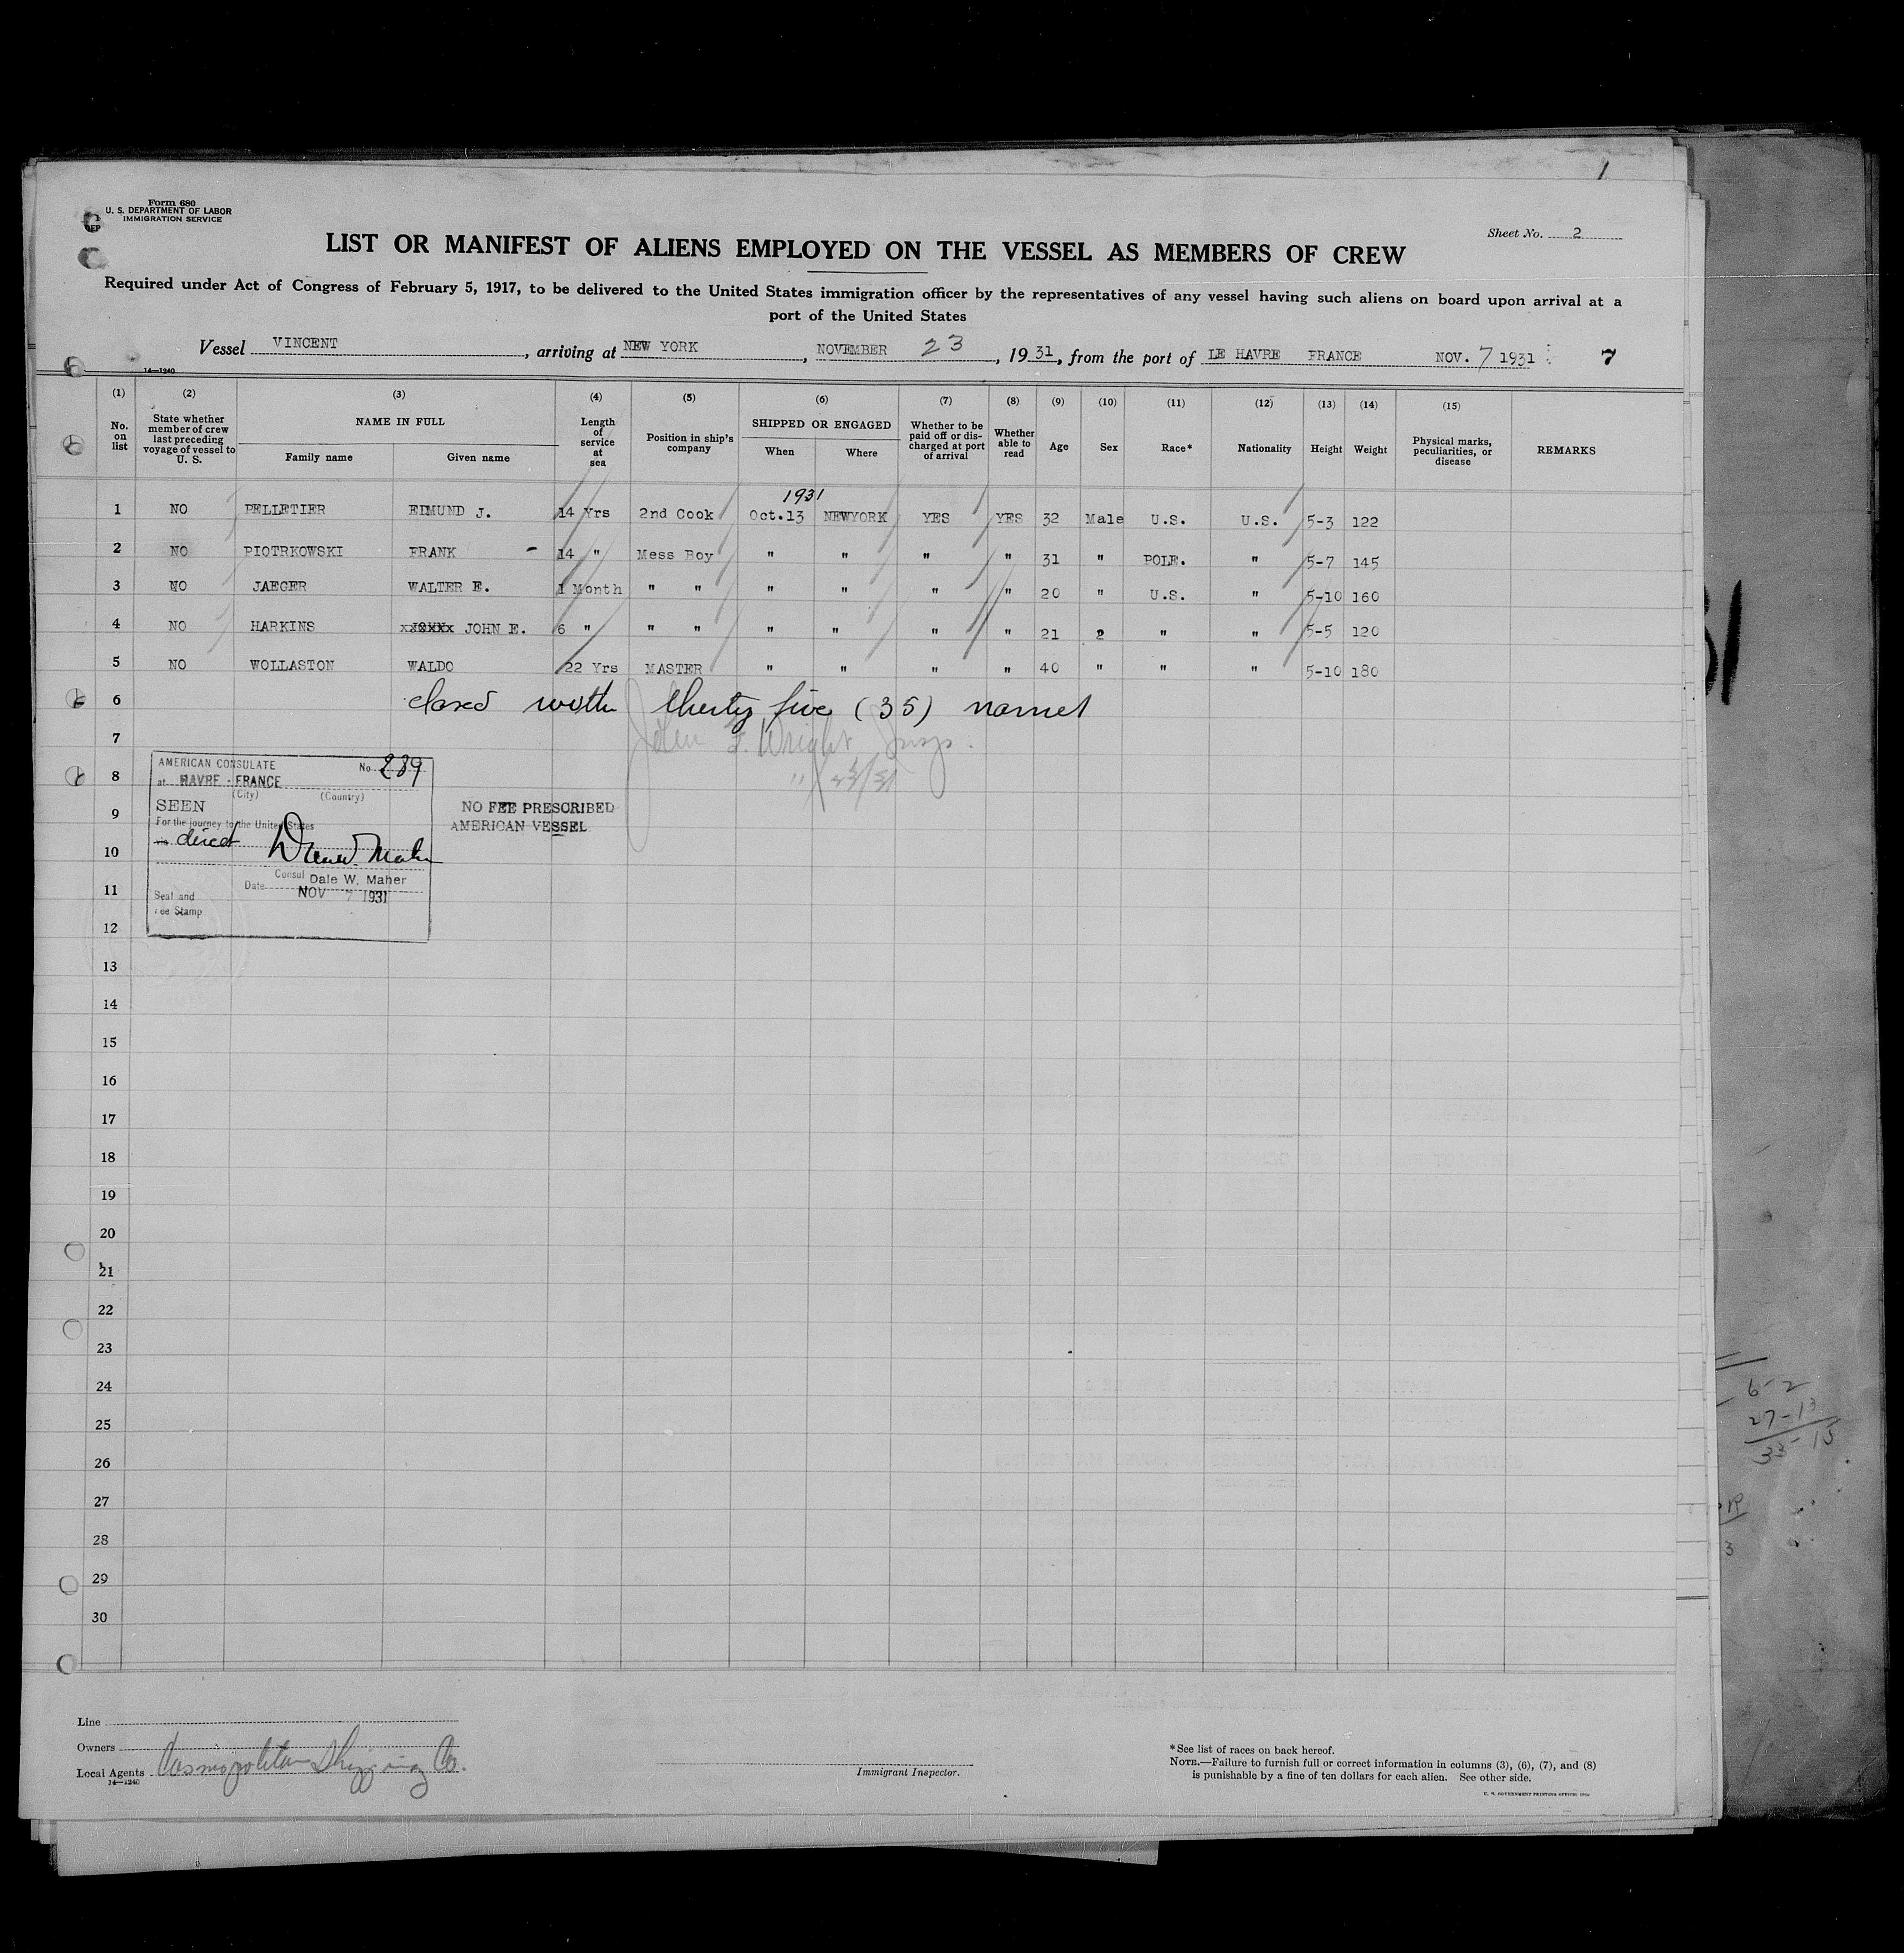 1
Form 680
U. S. DEPARTMENT OF LABOR
IMMIGRATION SERVICE
Sheet No. 2
LIST OR MANIFEST OF ALIENS EMPLOYED ON THE VESSEL AS MEMBERS OF CREW
Required under Act of Congress of February 5, 1917, to be delivered to the United States immigration officer by the representatives of any vessel having such aliens on board upon arrival at a
port of the United States
Vessel VINCENT, arriving at NEW YORK, NOVEMBER 23, 1931, from the port of LE HAVRE FRANCE NOV. 7 1931 7
14—1240
(1) (2) (3) (4) (5) (6) (7) (8) (9) (10) (11) (12) (13) (14) (15)
No. on list
State whether member of crew last preceding voyage of vessel to U. S.
NAME IN FULL
Family name
Given name
Length of service at sea
Position in ship's company
SHIPPED OR ENGAGED
When
Where
Whether to be paid off or discharged at port of arrival
Whether able to read
Age
Sex
Race*
Nationality
Height
Weight
Physical marks, peculiarities, or disease
REMARKS
1931
1 NO PELLETIER EDMUND J. 14 Yrs 2nd Cook Oct.13 NEWYORK YES YES 32 Male U.S. U.S. 5-3 122
2 NO PIOTRKOWSKI FRANK - 14 " Mess Boy " " " " 31 " POLE. " 5-7 145
3 NO JAEGER WALTER E. 1 Month " " " " " " 20 " U.S. " 5-10 160
4 NO HARKINS JOHN E. 6 " " " " " " " 21 " " " 5-5 120
5 NO WOLLASTON WALDO 22 Yrs MASTER " " " " 40 " " " 5-10 180
6 closed with thirty five (35) names
7 John F. Wright Insp.
11/23/31
8
9
10
11
12
13
14
15
16
17
18
19
20
21
22
23
24
25
26
27
28
29
30
AMERICAN CONSULATE No. 239
at HAVRE - FRANCE
(City) (Country)
SEEN
For the journey to the United States
via direct
Consul Dale W. Maher
Date NOV 7 1931
Seal and
Fee Stamp
NO FEE PRESCRIBED
AMERICAN VESSEL
6-2
27-13
33-15
3
Line
Owners
Local Agents Cosmopolitan Shipping Co.
14—1240
Immigrant Inspector.
*See list of races on back hereof.
NOTE.—Failure to furnish full or correct information in columns (3), (6), (7), and (8)
is punishable by a fine of ten dollars for each alien. See other side.